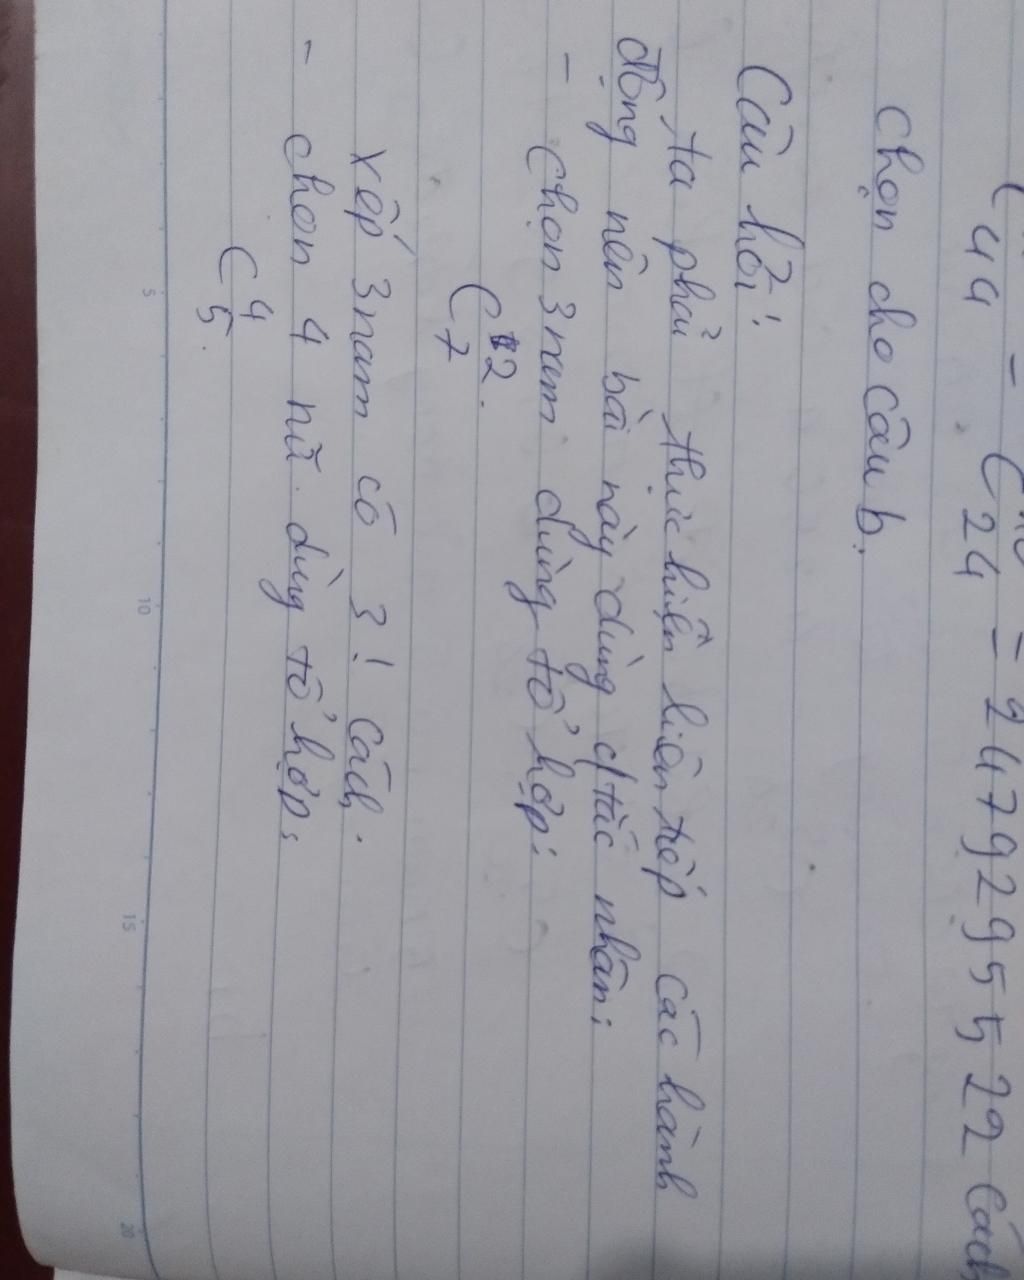 C44 - C24 = 2479295522 cách
chọn cho câu b.
Câu hỏi:
Ta phải thực hiện liên tiếp các hành
động nên bài này dùng q/tắc nhân:
- Chọn 3 nam dùng tổ hợp:
C 2 7.
Xếp 3 nam có 3! Cách.
- chọn 4 nữ. dùng tổ hợp:
C 4 5.
5
10
15
20